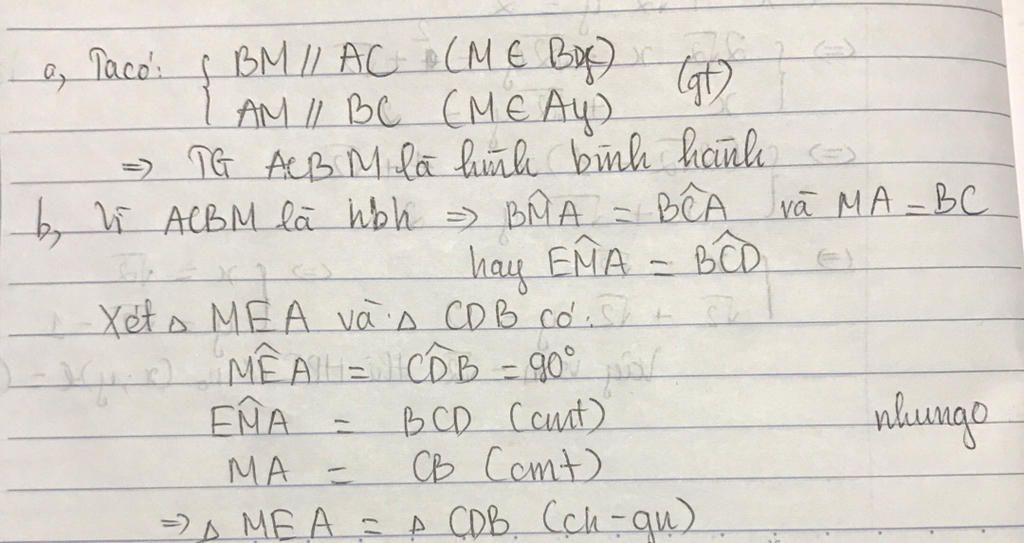 a, Ta có: { BM // AC (M ∈ Bx) (gt)
AM // BC (M ∈ Ay)
=> TG ACBM là hình bình hành
b, Vì ACBM là hbh => BM̂A = BĈA và MA = BC
hay EM̂A = BĈD
Xét △ MEA và △ CDB có:
MÊA = CD̂B = 90°
EM̂A = BCD (cmt)
nhungo
MA = CB (cmt)
=> △ MEA = △ CDB (ch-gn)